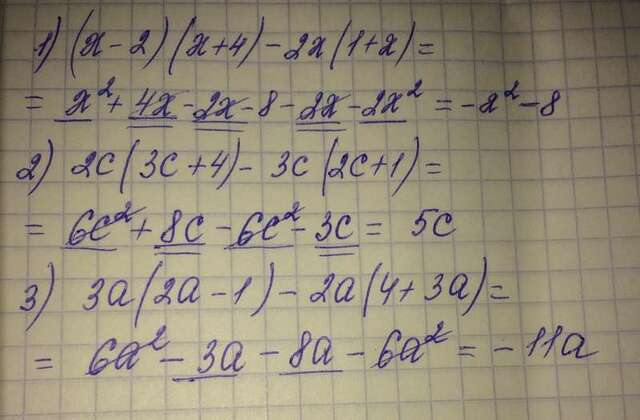 1) (x-2)(x+4)-2x(1+x)=
= x²+4x-2x-8-2x-2x²=-x²-8
2) 2c(3c+4)-3c(2c+1)=
= 6c²+8c-6c²-3c= 5c
3) 3a(2a-1)-2a(4+3a)=
= 6a²-3a-8a-6a²=-11a